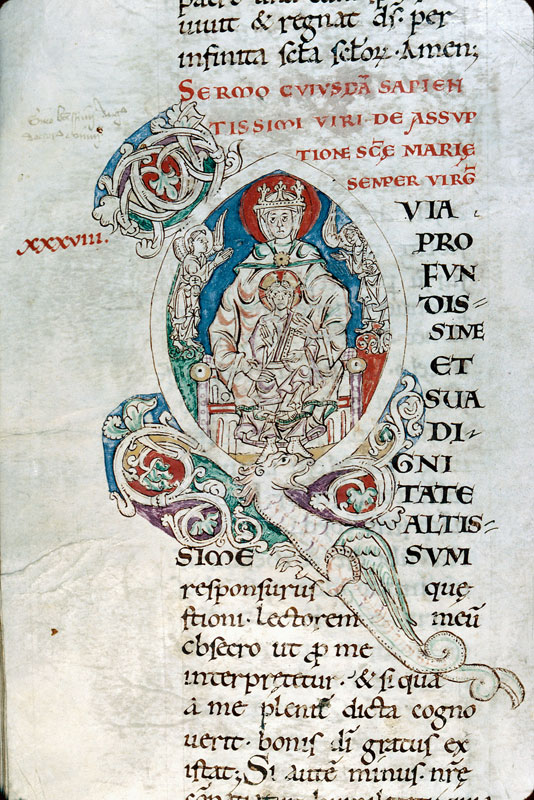 uiuit & regnat ds̄. per
infinita scła scłorꝝ. Amen;
SERMO CVIVSDĀ SAPIEN
TISSIMI VIRI DE ASSVP
TIONE SCE MARIE
SEMPER VIRG̅
xxxviii.
VIA
PRO
FUN
DIS-
SIME
ET
SUA
DI-
GNI
TATE
ALTIS-
SIME SUM
responsurus quę-
stioni. lectorem meū
obsecro ut ꝓ me
interpretetur. & si qua
a me plene dicta cogno
uerit. bonis dī gratus ex
istat; Si autē minus. nrę